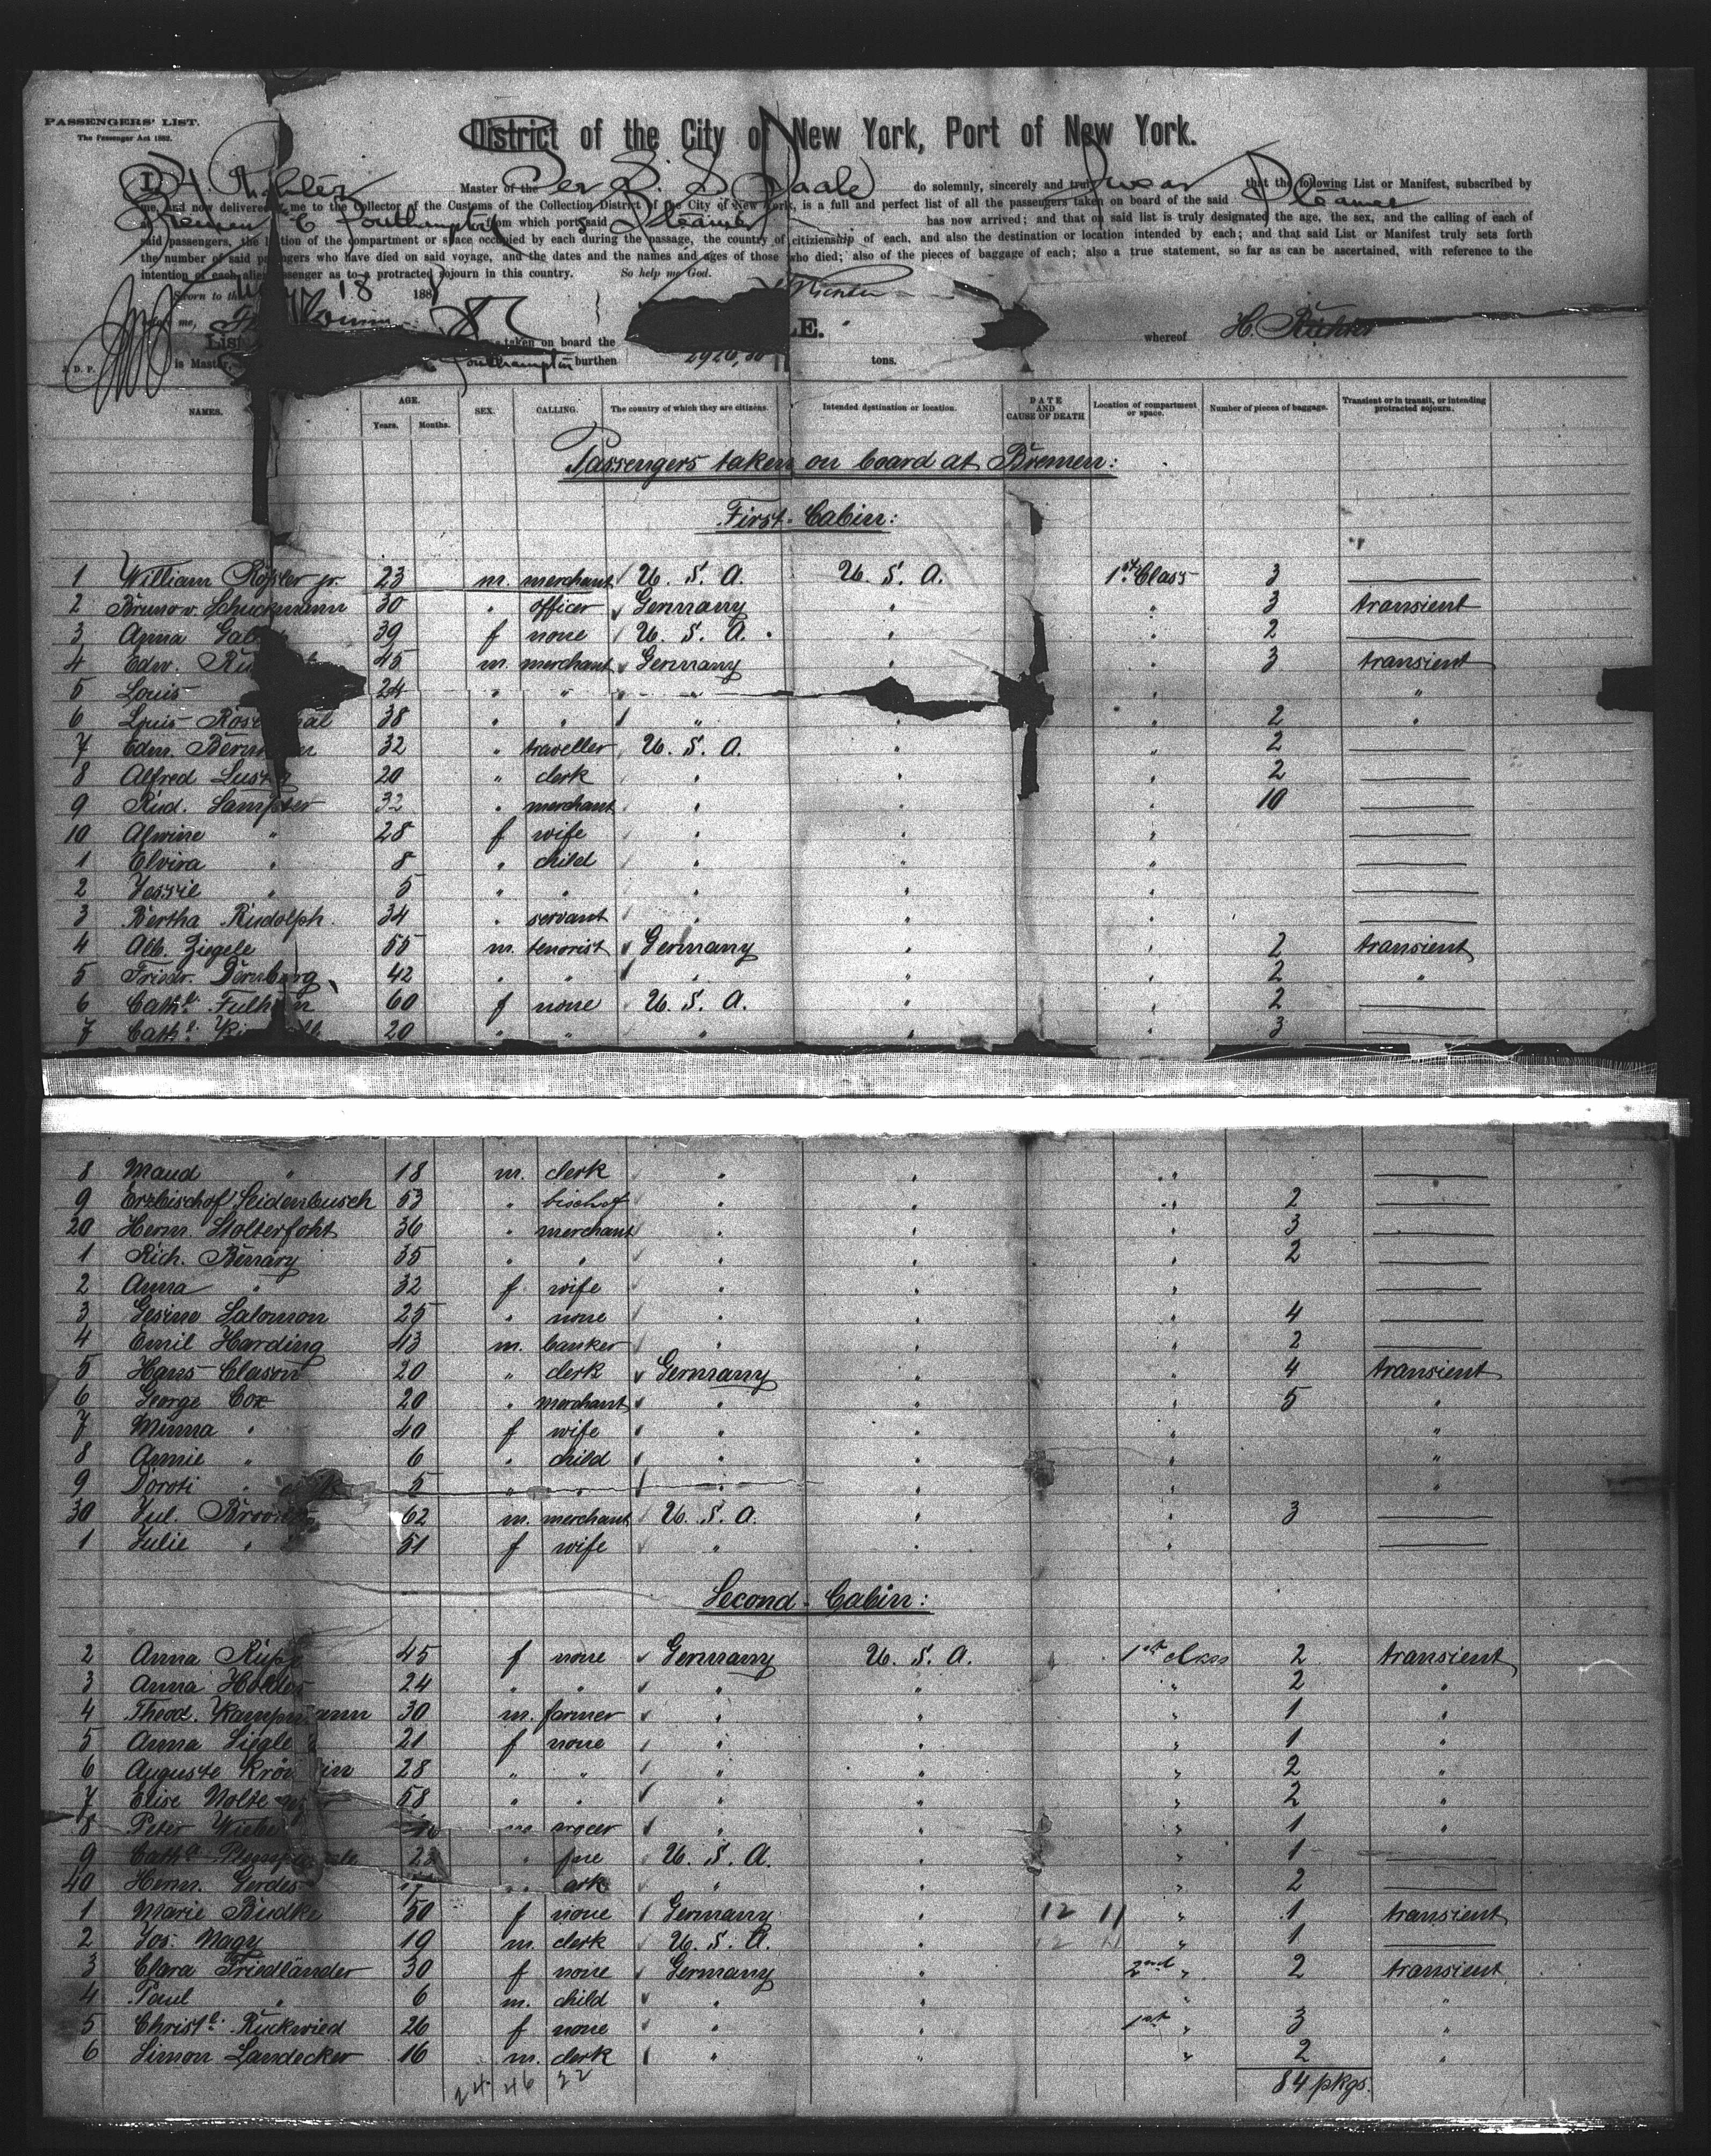 PASSENGERS' LIST.
The Passenger Act 1882.
District of the City of New York, Port of New York.
I, H. Richter Master of the Ger. S. S. Saale do solemnly, sincerely and truly swear that the following List or Manifest, subscribed by
me, and now delivered by me to the Collector of the Customs of the Collection District of the City of New York, is a full and perfect list of all the passengers taken on board of the said Steamer
Bremen & Southampton from which port said Steamer has now arrived; and that on said list is truly designated the age, the sex, and the calling of each of
said passengers, the location of the compartment or space occupied by each during the passage, the country of citizienship of each, and also the destination or location intended by each; and that said List or Manifest truly sets forth
the number of said passengers who have died on said voyage, and the dates and the names and ages of those who died; also of the pieces of baggage of each; also a true statement, so far as can be ascertained, with reference to the
intention of each alien passenger as to a protracted sojourn in this country. So help me God.
Sworn to 18 188 Richter
me,
List taken on board the LE. whereof H. Richter
J. D. P. is Master, Southampton burthen tons.
NAMES. AGE. Years. Months. SEX. CALLING. The country of which they are citizens. Intended destination or location. DATE AND CAUSE OF DEATH Location of compartment or space. Number of pieces of baggage. Transient or in transit, or intending protracted sojourn.
Passengers taken on board at Bremen:
First-Cabin:
1 William jr. 23 m. merchant U. S. A. U. S. A. 1st Class 3
2 Bruno v. Schuckmann 30 " officer Germany " " 3 transient
3 Anna 39 f none U. S. A. " " 2
4 Edw. 45 m. merchant Germany " " 3 transient
5 Louis 24 " " " " "
6 Louis 38 " " " " " 2 "
7 Edm. 32 " traveller U. S. A. " " 2
8 Alfred 20 " clerk " " " 2
9 Rud. Sampter 32 " merchant " " " 10
10 Alwine " 28 f wife " " "
1 Elvira " 8 " child " " "
2 Jessie " 5 " " " " "
3 Bertha Rudolph. 34 " servant " " "
4 Alb. Ziegele 55 m. tenorist Germany " " 2 transient
5 Friedr. Dernburg 42 " " " " " 2 "
6 Cathe. 60 f none U. S. A. " " 2
7 Cathe. 20 " " " " " 3
8 Maud " 18 m. clerk " " "
9 Erzbischof Seidenbusch 53 " bischof " " " 2
20 Herm. Stolterfoht 36 " merchant " " " 3
1 Rich. Benary 35 " " " " " 2
2 Anna " 32 f wife " " "
3 Gesine Salomon 25 " none " " " 4
4 Emil Harding 43 m. banker " " " 2
5 Hans Clason 20 " clerk Germany " " 4 transient
6 George Cox 20 " merchant " " " 5 "
7 Minna " 40 f wife " " " "
8 Annie " 6 " child " " " "
9 Doroti " 5 " " " " " "
30 Jul. 62 m. merchant U. S. A. " " 3
1 Julie " 51 f wife " " "
Second-Cabin:
2 Anna 45 f none Germany U. S. A. 1st class 2 transient
3 Anna 24 " " " " " 2 "
4 Theod. Kampmann 30 m. farmer " " " 1 "
5 Anna 21 f none " " " 1 "
6 Auguste 28 " " " " " 2 "
7 Elise Nolte 58 " " " " " 2 "
8 Peter m " " " 1 "
9 Catha " U. S. A. " 1
40 Herm. Gerdes " " " 2
1 Marie 50 f none Germany " 12 11 " 1 transient
2 Jos. Nagy 19 m. clerk U. S. A. " " 1
3 Clara Friedländer 30 f none Germany " 2nd " 2 transient
4 Paul " 6 m. child " " " "
5 Christe. Ruckwied 26 f none " " 1st " 3 "
6 Simon Landecker 16 m. clerk " " " 2 "
24 46 22 84 pkgs.